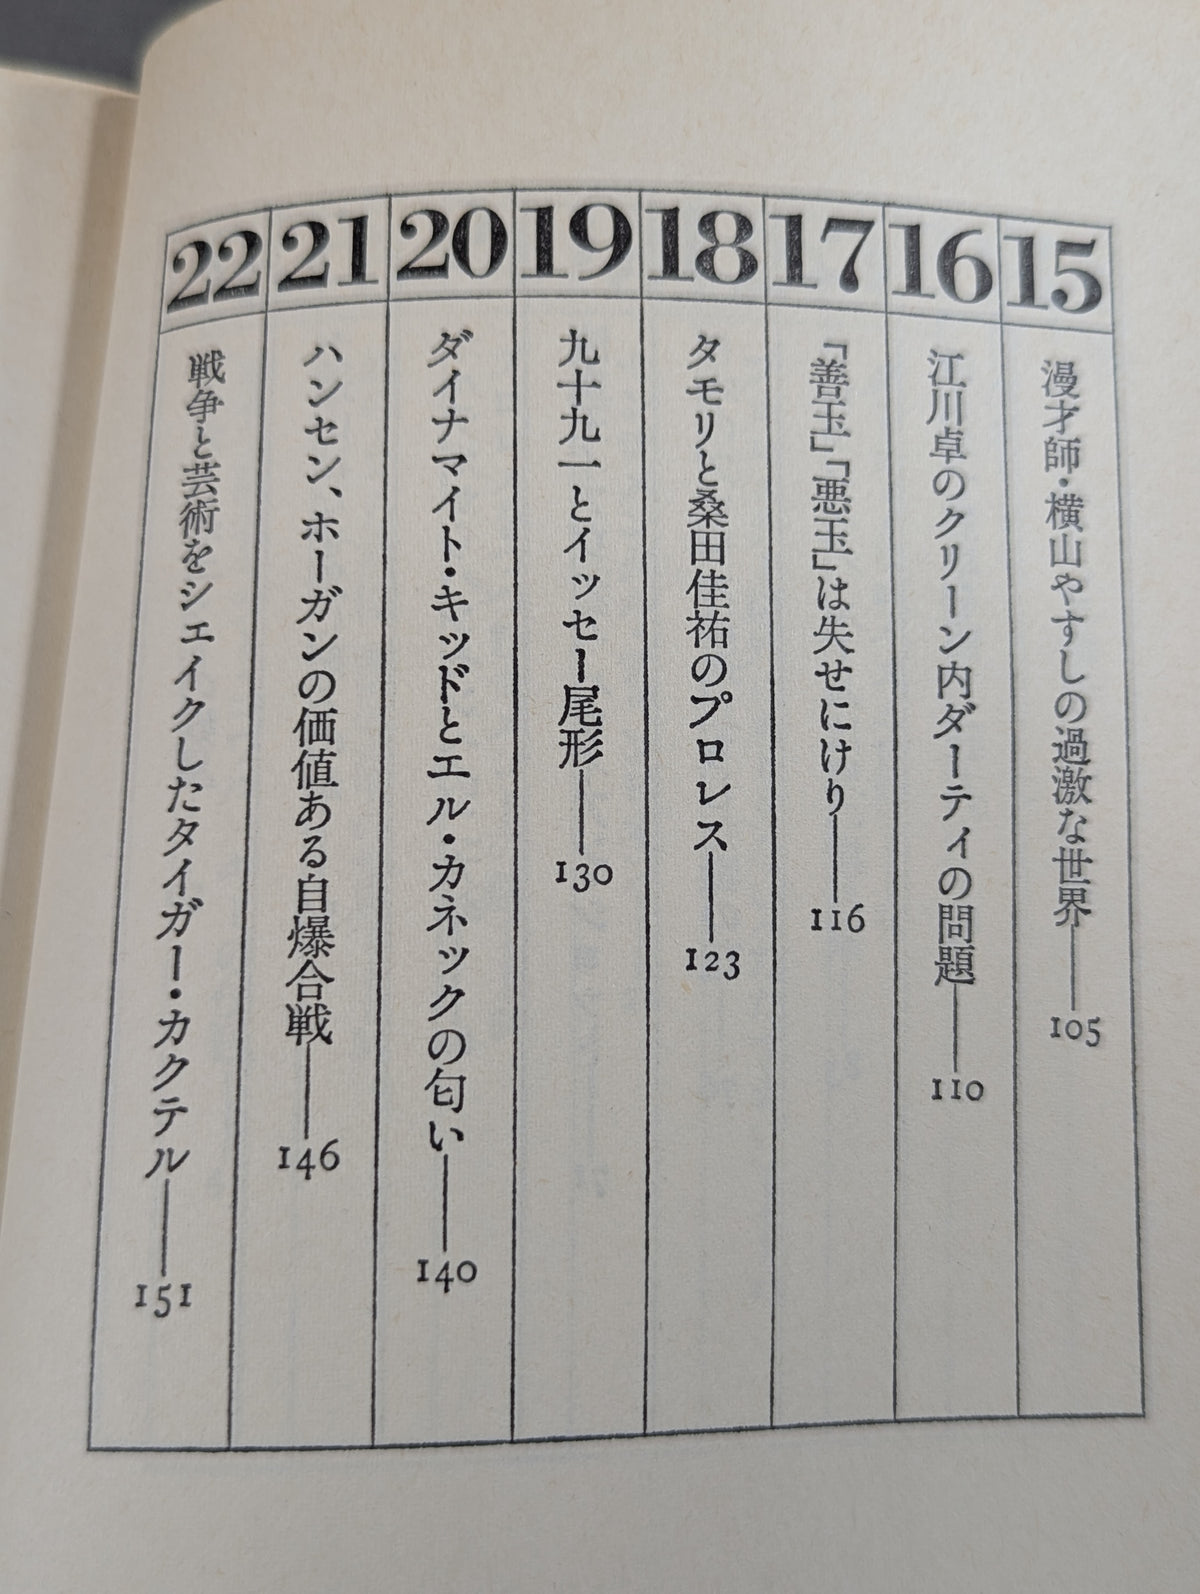 15
漫才師・横山やすしの過激な世界——105
16
江川卓のクリーン内ダーティの問題——110
17
「善玉」「悪玉」は失せにけり——116
18
タモリと桑田佳祐のプロレス——123
19
九十九一とイッセー尾形——130
20
ダイナマイト・キッドとエル・カネックの匂い——140
21
ハンセン、ホーガンの価値ある自爆合戦——146
22
戦争と芸術をシェイクしたタイガー・カクテル——151